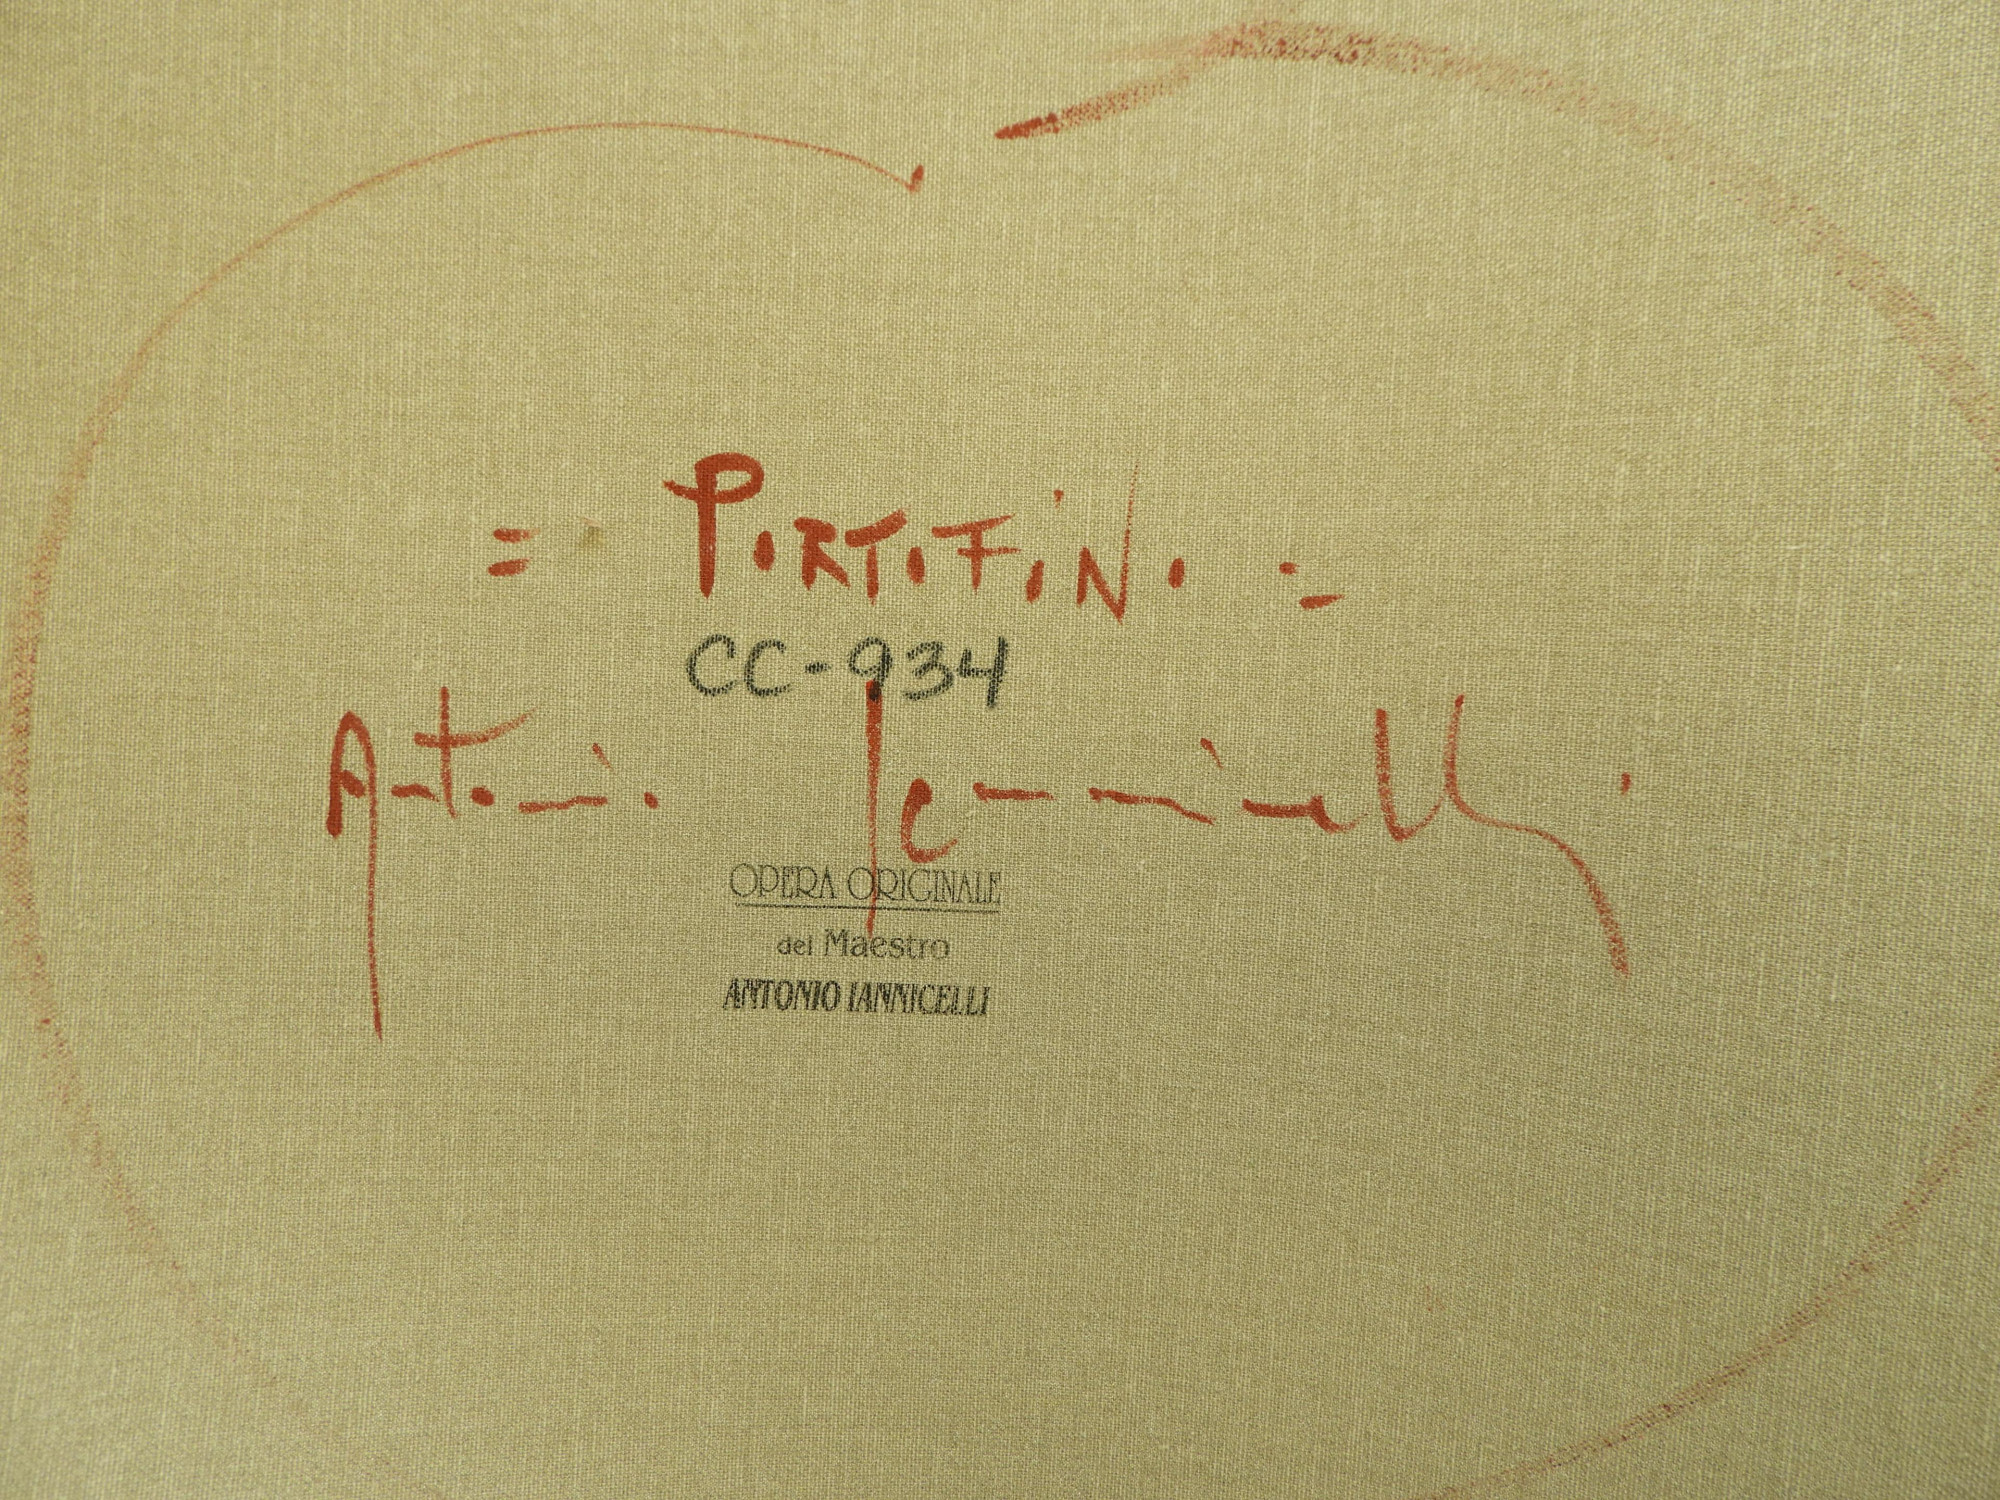 = PORTOFiNO =
CC-934
Antonio Iannicelli
OPERA ORIGINALE
del Maestro
ANTONIO IANNICELLI